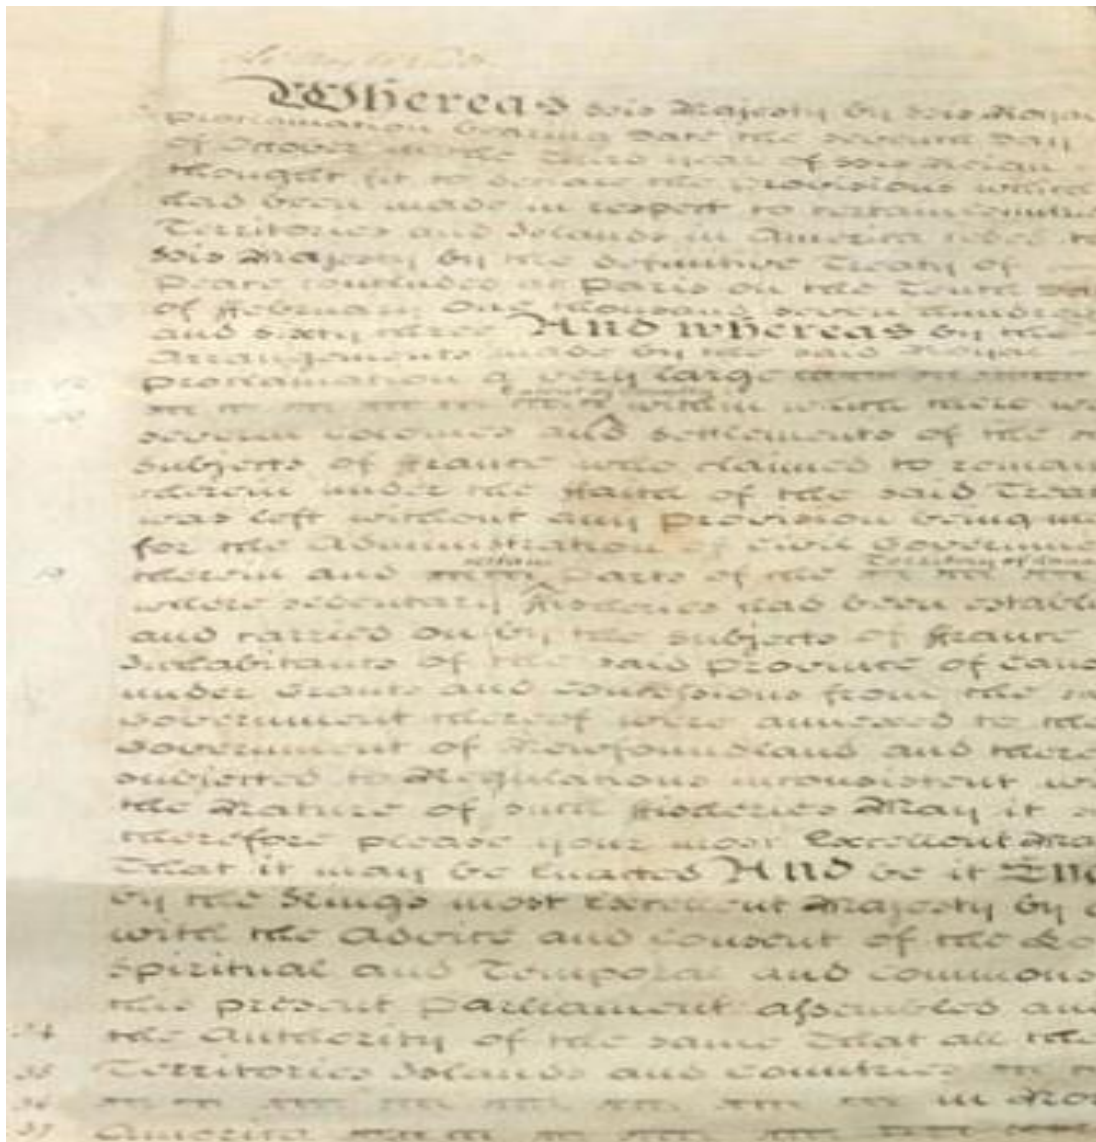 Whereas His Majesty by His Royal
Proclamation bearing Date the Seventh Day
of October in the Third year of His Reign
thought fit to declare the Provisions which
had been made in respect to certain Countries
Territories and Islands in America ceded to
His Majesty by the definitive Treaty of
Peace concluded at Paris on the Tenth
of February One thousand seven hundred
and sixty three And whereas by the
Arrangements made by the said Royal
Proclamation a very large
within which there we
several Colonies and Settlements of the
Subjects of France who claimed to remain
therein under the Faith of the said Trea
was left without any Provision being ma
for the Administration of Civil Governme
certain Territory of
therein and Parts of the
where sedentary Fisheries had been establi
and carried on by the Subjects of France
Inhabitants of the said Province of Cana
under Grants and Concessions from the
Government thereof were annexed to the
Government of Newfoundland and there
subjected to Regulations inconsistent wi
the Nature of such Fisheries May it
therefore please your most Excellent Ma
That it may be Enacted And be it En
by the Kings most Excellent Majesty by
with the Advice and Consent of the Lo
Spiritual and Temporal and Commons
this present Parliament assembled an
34 the Authority of the same That all the
35 Territories Islands and Countries
36 in No
37 America